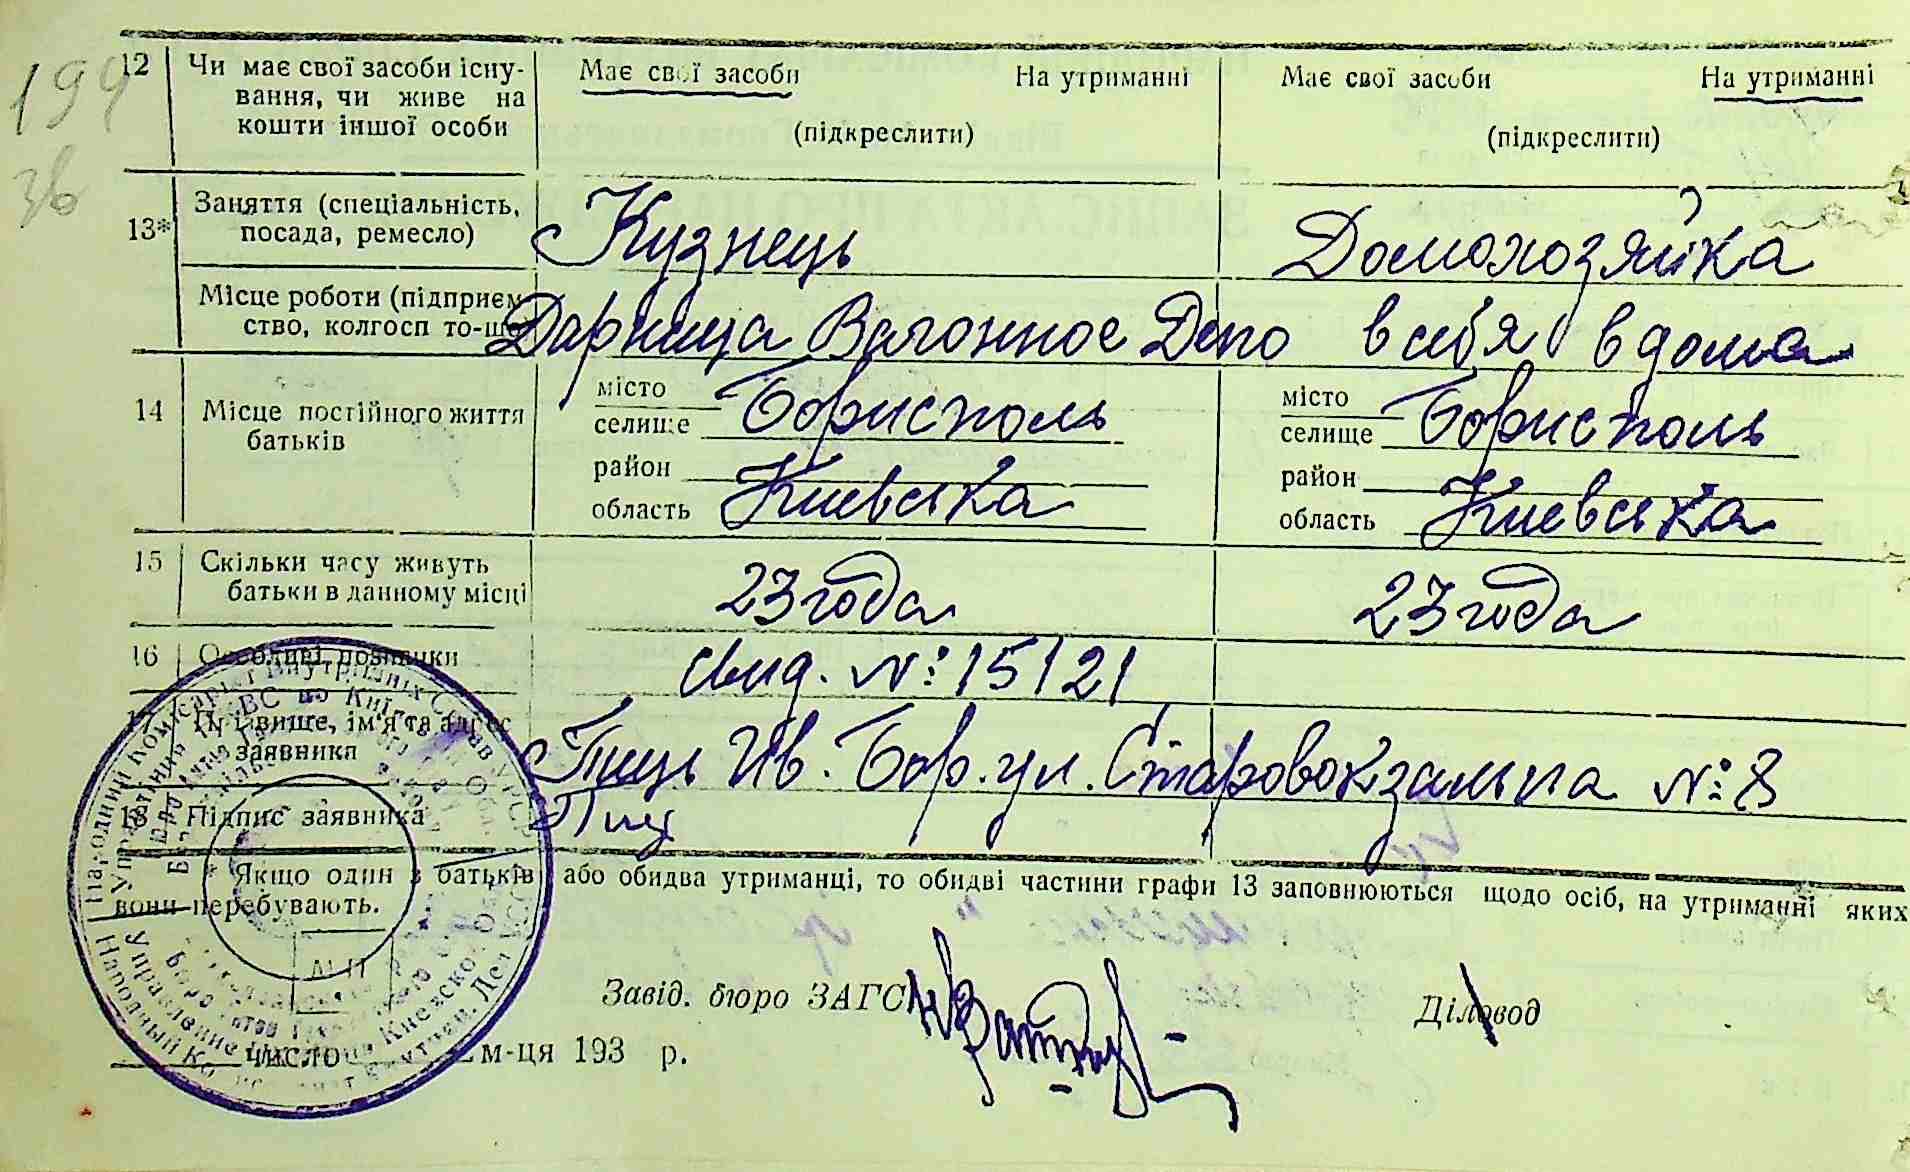 199
зв
12 Чи має свої засоби існу- Має свої засоби На утриманні Має свої засоби На утриманні
вання, чи живе на
кошти іншої особи (підкреслити) (підкреслити)
13* Заняття (спеціальність, Кузнець Домохозяйка
посада, ремесло)
Місце роботи (підприєм Дарница Вагонное Депо в себя в дома
ство, колгосп то-що
14 Місце постійного життя місто Борисполь місто Борисполь
батьків селище селище
район район
область Киевська область Киевська
15 Скільки часу живуть 23 года 23 года
батьки в данному місці
16 Особливі позначки свид. №: 15121
17 Прізвище, ім'я та адрес Пиць Ив. Бор. ул. Старовокзальна №: 8
заявника
18 Підпис заявника Пиц
Якщо один з батьків або обидва утриманці, то обидві частини графи 13 заповнюються щодо осіб, на утриманні яких
вони перебувають.
Завід. бюро ЗАГС Діловод
число м-ця 193 р.
Народний Комісаріат Внутрішніх Справ УРСР